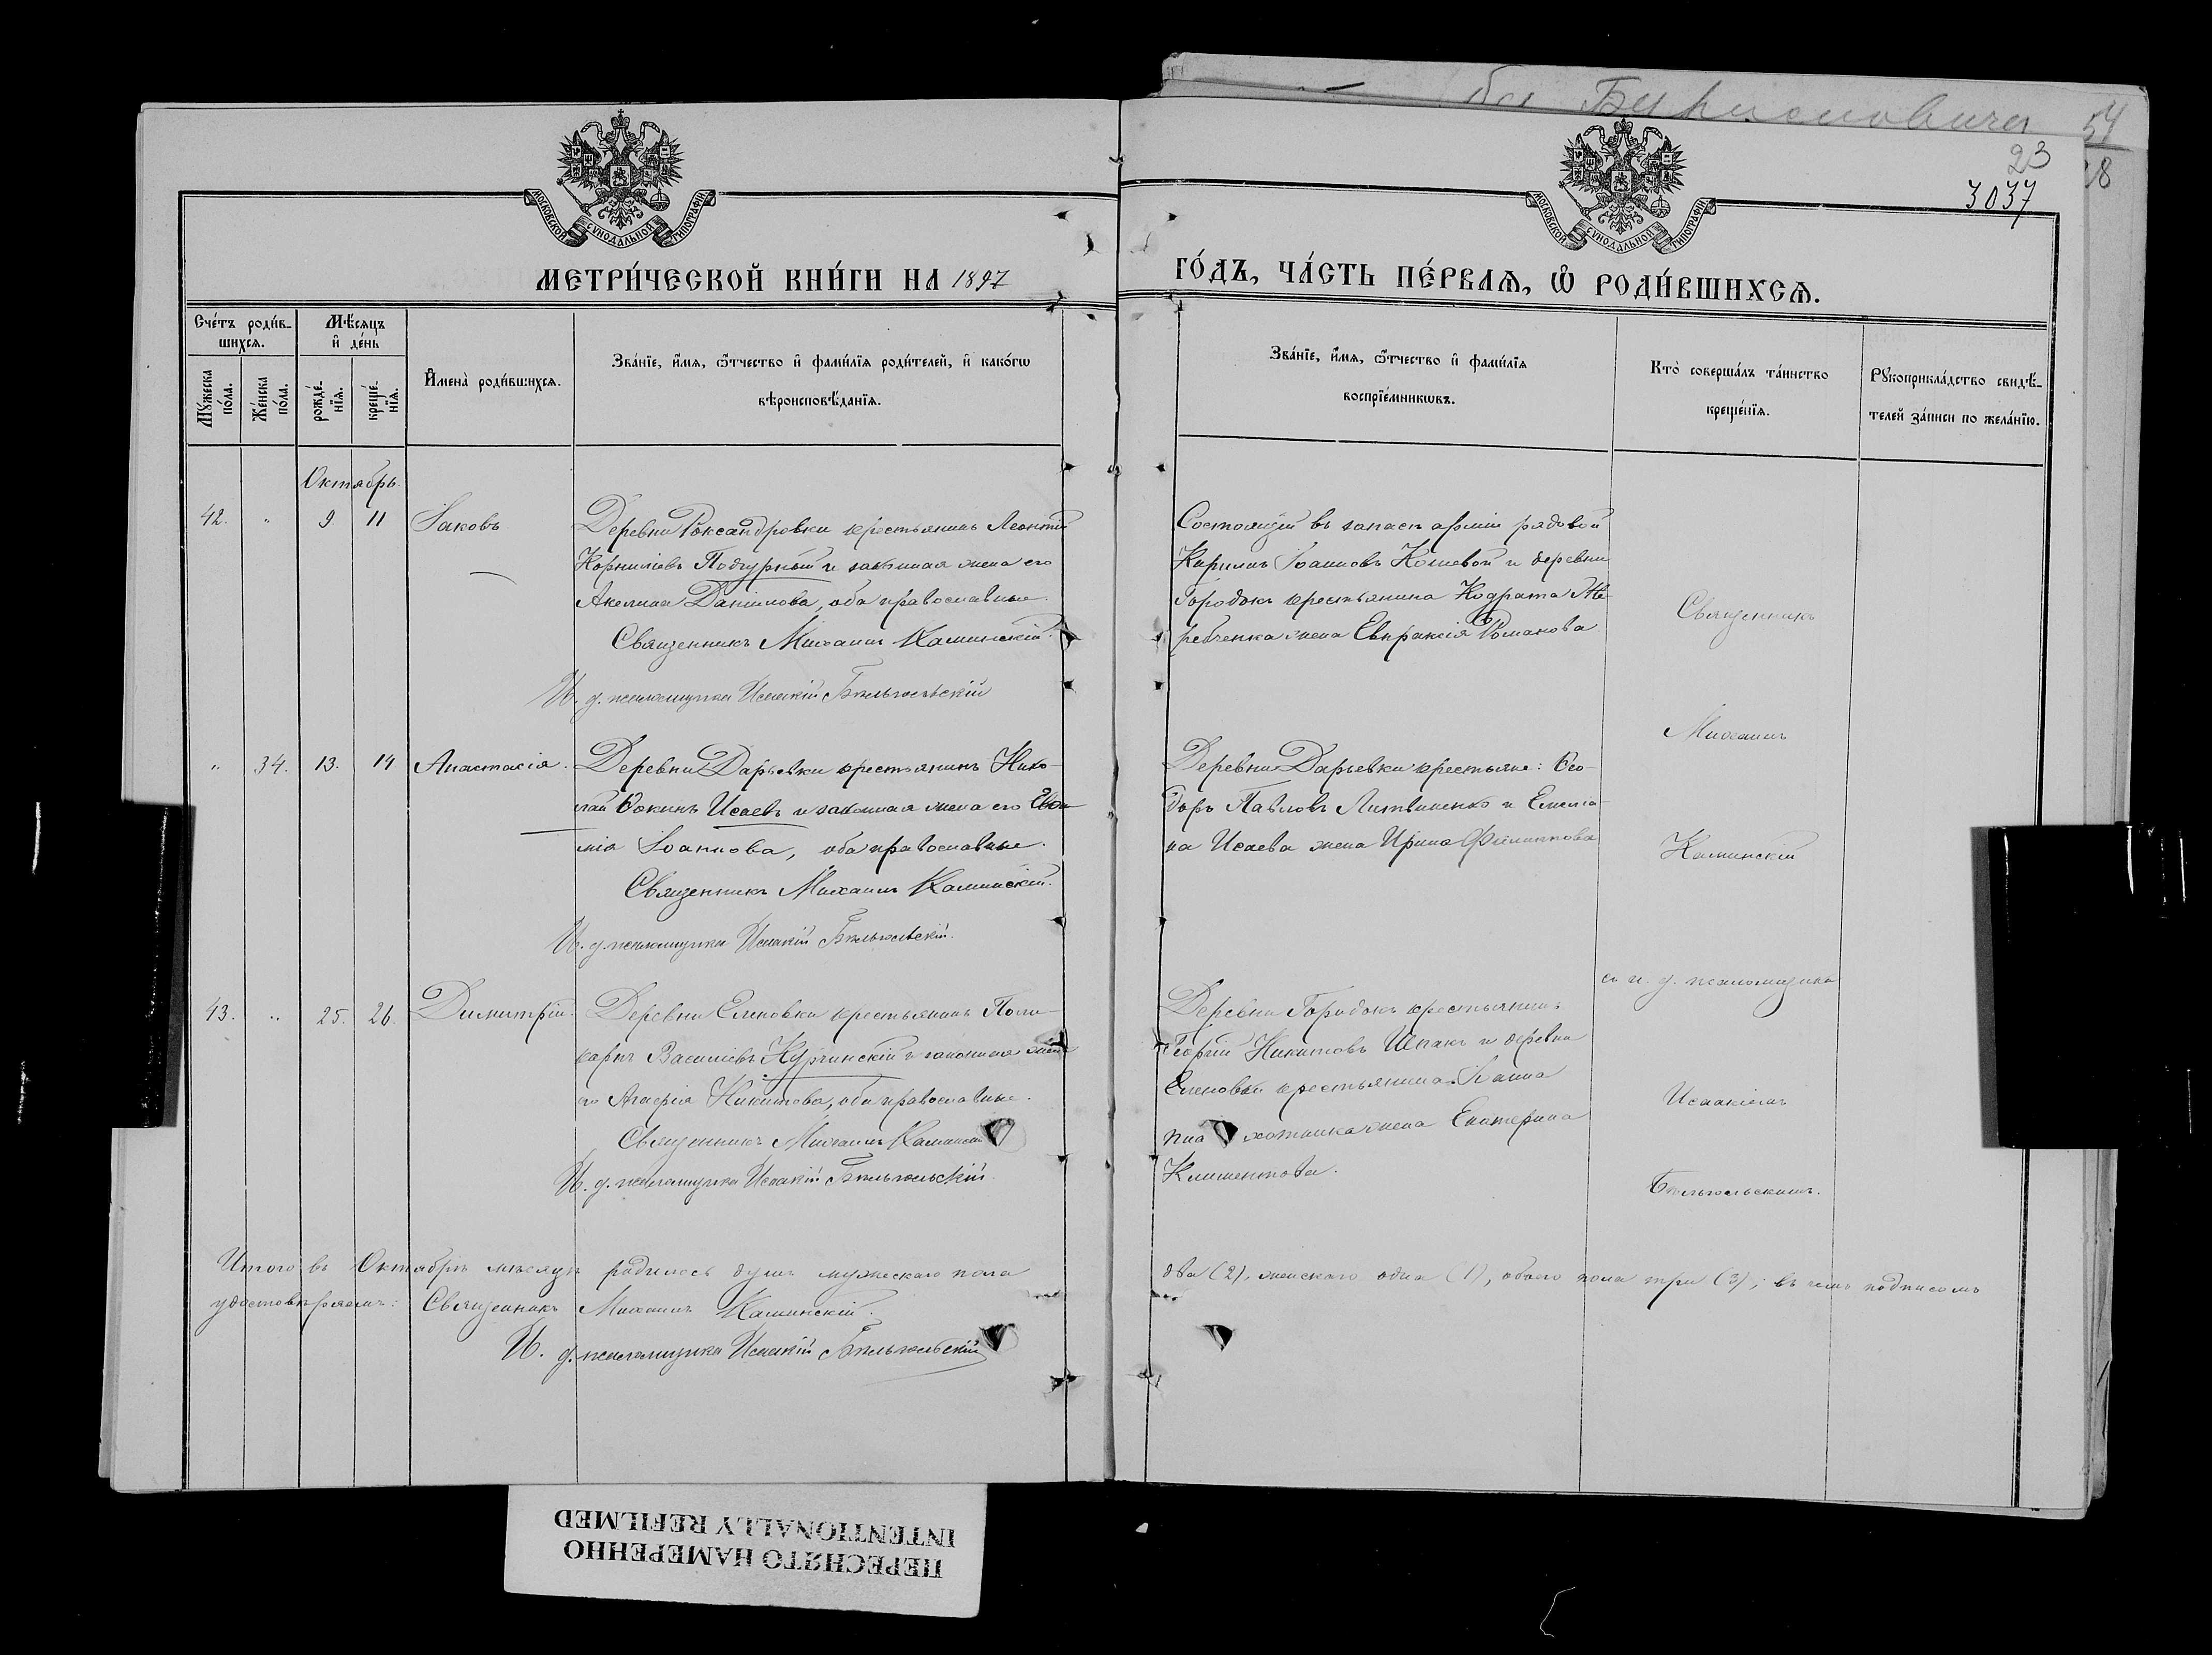 ба Бириновича 54
23
28
3037
МОСКОВСКОЙ СѴНОДАЛЬНОЙ ТИПОГРАФІИ
МОСКОВСКОЙ СѴНОДАЛЬНОЙ ТИПОГРАФІИ
МЕТРИ́ЧЕСКОЙ КНИ́ГИ НА 1897
ГО́ДЪ, ЧА́СТЬ ПЕ́РВАѦ, Ѽ РОДИ́ВШИХСѦ.
Сче́тъ роди́в-
шихсѧ.
Мѣ́сѧцъ
и҆ де́нь
Мꙋ́жеска
по́ла.
Же́нска
по́ла.
рожде́-
нїѧ.
креще́-
нїѧ.
И҆мена̀ роди́вшихсѧ.
Зва́нїе, и҆́мѧ, ѻ҆́тчество и҆ фами́лїѧ роди́телей, и҆ како́гѡ
вѣроисповѣ́данїѧ.
Зва́нїе, и҆́мѧ, ѻ҆́тчество и҆ фами́лїѧ
воспрїе́мникѡвъ.
Кто̀ соверша́лъ та́инство
креще́нїѧ.
Рꙋкоприкла́дство свидѣ́-
телей за́писи по жела́нїю.
Октябрь.
42. " 9 11 Іаковъ
Деревни Роксандровки крестьянинъ Леонтій
Корниліевъ Подгурный и законная жена его
Акилина Даніилова, оба православные.
Священникъ Михаилъ Каминскій.
И. д. псаломщика Исаакій
Состоящій въ запасѣ арміи рядовой
Кириллъ Іоанновъ Кошевой и деревни
Городокъ крестьянина Кодрата Же-
ребченка жена Евпраксія Романова.
Священникъ
Михаилъ
" 34. 13. 14 Анастасія.
Деревни Дарьевки крестьянинъ Нико-
лай Ѳокинъ Исаевъ и законная жена его
мія Іоаннова, оба православные.
Священникъ Михаилъ Каминскій.
И. д. псаломщика Исаакій
Деревни Дарьевки крестьяне: Ѳео-
доръ Павловъ Литвиненко и Емеліа-
на Исаева жена Ирина Филиппова
Каминскій
съ и. д. псаломщика
43. " 25. 26. Димитрій.
Деревни Еленовки крестьянинъ Поли-
карпъ Василіевъ Курчинскій и законная жена
его Агафія Никитова, оба православные.
Священникъ Михаилъ Каминскій
И. д. псаломщика Исаакій
Деревни Городокъ крестьянинъ
Георгій Никитовъ Шпакъ и деревни
Еленовки крестьянина
жена Екатерина
Климентова.
Исаакіемъ
Итого въ Октябрѣ мѣсяцѣ родилось душъ мужескаго пола
два (2), женскаго одна (1), обоего пола три (3); въ чемъ подписомъ
удостовѣряемъ: Священникъ Михаилъ Каминскій.
И. д. псаломщика Исаакій
ПЕРЕСНЯТО НАМЕРЕННО
INTENTIONALLY REFILMED